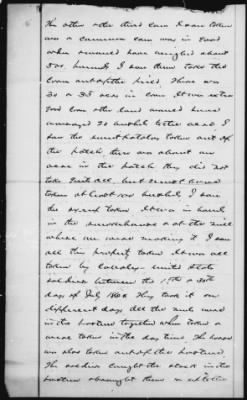 the other & the third cow I saw taken
was a common cow was in good
when summed have weighed about
500. pounds I saw them take the
corn out of the field. There was
30 or 35 acres in corn. It was extra
good corn & the land would have
averaged 30 bushels to the acre. I
saw the sweet potatoes taken out of
the patch there was about an
acre in the patch they did not
take quite all but
taken at least 100 bushels. I saw
the syrup taken. It was in barrels
in the smokehouse & at the mill
where we were making it. I saw
all this property taken. It was all
taken by Cavalry United States
soldiers between the 15th & 30th
days of July 1864. They took it on
different days. All the mules were
in the pasture together when taken &
were taken in the day time. The horses
was also taken out of the pasture.
The soldiers caught the stock in the
pasture & brought them